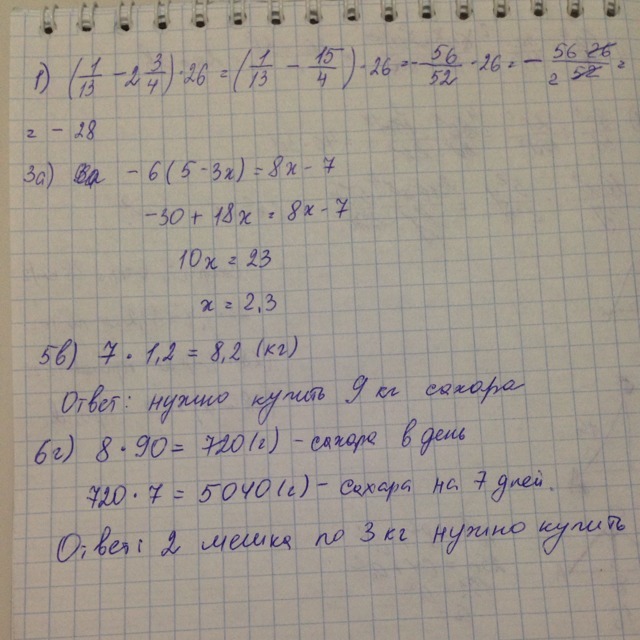 1) (1/13 - 2 3/4) · 26 = (1/13 - 15/4) · 26 = - 56/52 · 26 = - 56 26/2 52 =
= - 28
3а) - 6(5 - 3x) = 8x - 7
-30 + 18x = 8x - 7
10x = 23
x = 2,3
5в) 7 · 1,2 = 8,2 (кг)
Ответ: нужно купить 9 кг сахара
6г) 8 · 90 = 720(г) - сахара в день
720 · 7 = 5040(г) - сахара на 7 дней.
Ответ: 2 мешка по 3 кг нужно купить